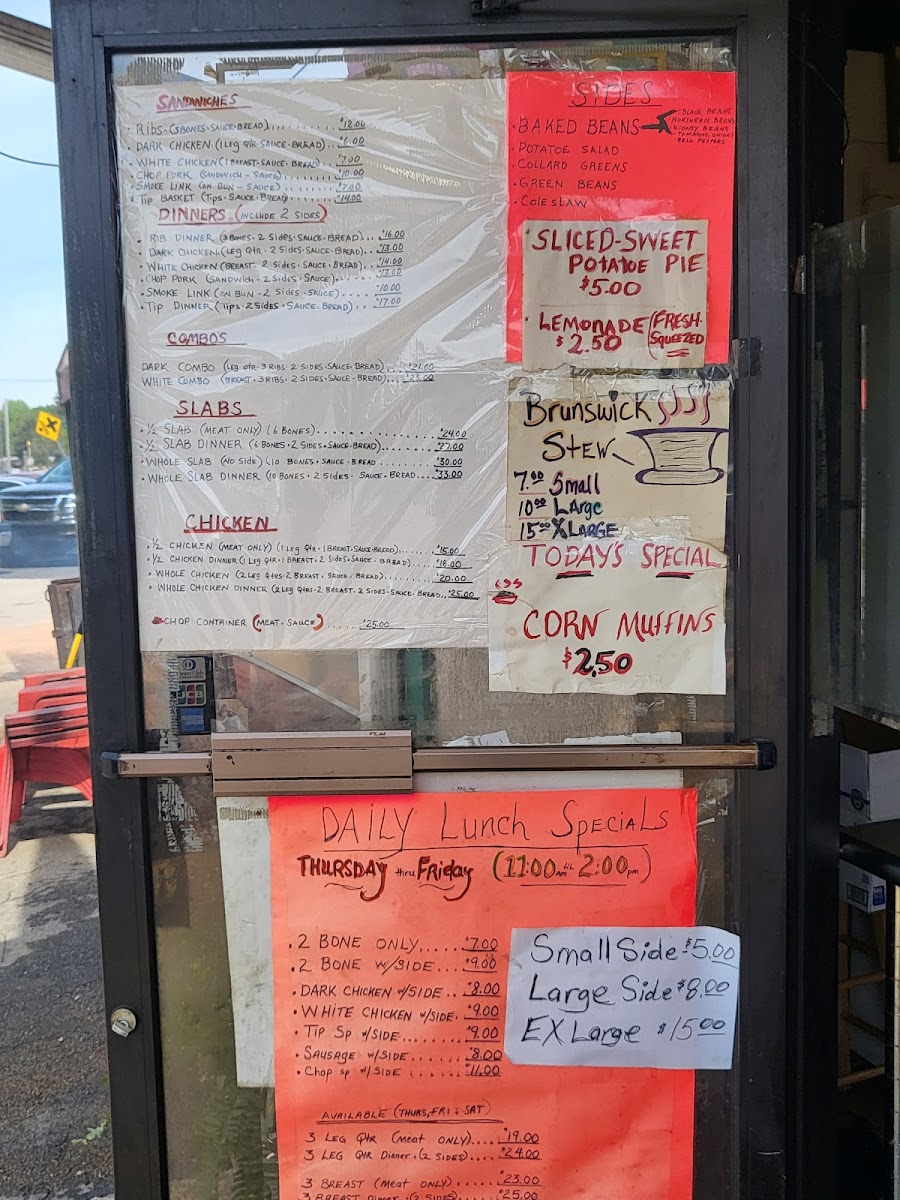 SANDWICHES
· Ribs-(3BONES·SAUCE·BREAD)................$12.00
· DARK CHICKEN (1 Leg Qtr·SAUCE·BREAD)........$6.00
· WHITE CHICKEN (1 BREAST·SAUCE·BREAD)........$7.00
· CHOP PORK (SANDWICH - SAUCE)............$10.00
· SMOKE LINK (ON BUN - SAUCE)............$7.00
· Tip BASKET (Tips·SAUCE·BREAD)............$14.00
DINNERS (INCLUDE 2 SIDES)
· RIB DINNER (3 BONES·2 Sides·SAUCE·BREAD)....$16.00
· DARK CHICKEN (LEG QTR·2 SIDES·SAUCE·BREAD)....$13.00
· WHITE CHICKEN (BREAST·2 SIDES·SAUCE·BREAD)....$14.00
· CHOP PORK (SANDWICH - 2 SIDES·SAUCE).......$13.00
· SMOKE LINK (ON BUN·2 SIDES·SAUCE)......$10.00
· TIP DINNER (Tips·2 SIDES·SAUCE·BREAD)....$17.00
COMBO'S
DARK COMBO (Leg Qtr·3 RIBS·2 SIDES·SAUCE·BREAD)......$21.00
WHITE COMBO (BREAST·3 RIBS·2 SIDES·SAUCE·BREAD).....$23.00
SLABS
· ½ SLAB (MEAT ONLY) (6 BONES)....................$24.00
· ½ SLAB DINNER (6 BONES·2 SIDES·SAUCE·BREAD)........$27.00
· WHOLE SLAB (NO SIDE) (10 BONES·SAUCE·BREAD........$30.00
· WHOLE SLAB DINNER (10 BONES·2 SIDES·SAUCE·BREAD....$33.00
CHICKEN
· ½ CHICKEN (MEAT ONLY) (1 LEG Qtr·1 BREAST·SAUCE·BREAD).......$15.00
· ½ CHICKEN DINNER (1 LEG Qtr·1 BREAST·2 SIDES·SAUCE·BREAD).....$18.00
· WHOLE CHICKEN (2 LEG QTRS·2 BREAST·SAUCE·BREAD).........$20.00
· WHOLE CHICKEN DINNER (2 LEG QTRS·2 BREAST·2 SIDES·SAUCE·BREAD...$25.00
CHOP CONTAINER (MEAT·SAUCE)......$25.00
SIDES
· BAKED BEANS
· BLACK BEANS
NORTHERN BEANS
KIDNEY BEANS
TOMATOES, ONIONS
BELL PEPPERS
· POTATOE SALAD
· COLLARD GREENS
· GREEN BEANS
· COLESLAW
SLICED-SWEET
POTATOE PIE
$5.00
LEMONADE (FRESH-
SQUEEZED)
$2.50
Brunswick
STEW
7.00 Small
10.00 LArge
15.00 XLARGE
TODAY'S SPECIAL
CORN MUFFINS
$2.50
JCB
DAILY Lunch SPECIALS
THURSDAY thru FRIDAY (11:00am til 2:00pm)
· 2 BONE ONLY......$7.00
· 2 BONE W/SIDE....$9.00
· DARK CHICKEN W/SIDE...$8.00
· WHITE CHICKEN W/SIDE.$9.00
· TIP Sp W/SIDE......$9.00
· SAUSAGE W/SIDE.......$8.00
· CHOP sp W/SIDE......$11.00
Small Side-$5.00
Large Side $8.00
EX Large $15.00
AVAILABLE (THURS, FRI & SAT)
3 LEG QTR (MEAT ONLY).....$19.00
3 LEG QTR Dinner.(2 SIDES).....$24.00
3 BREAST (MEAT ONLY).....$23.00
3 BREAST Dinner.(2 SIDES)....$25.00